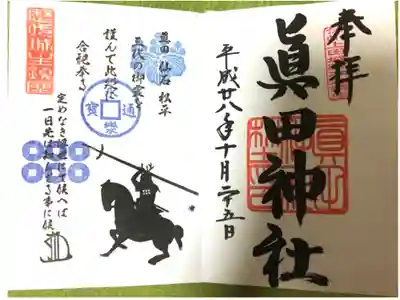 奉拝
眞田神社
平成廿八年十月二十五日
眞田 仙石 松平
謹んで此処に
合祀奉る
通
寶
定めなき浮世にて候へば
一日先は知らざる事に候